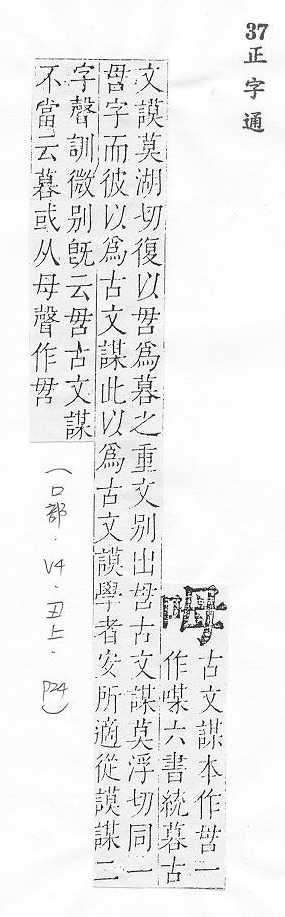 37正字通
呣
古文謀本作𠰔一
作㖼六書統暮古
文謨莫湖切復以𠰔爲暮之重文別出𠰔古文謀莫浮切同一
𠰔字而彼以爲古文謀此以爲古文謨學者安所適從謨謀二
字聲訓微别旣云𠰔古文謀
不當云暮或从母聲作𠰔
(口部．V4．丑上．P24)